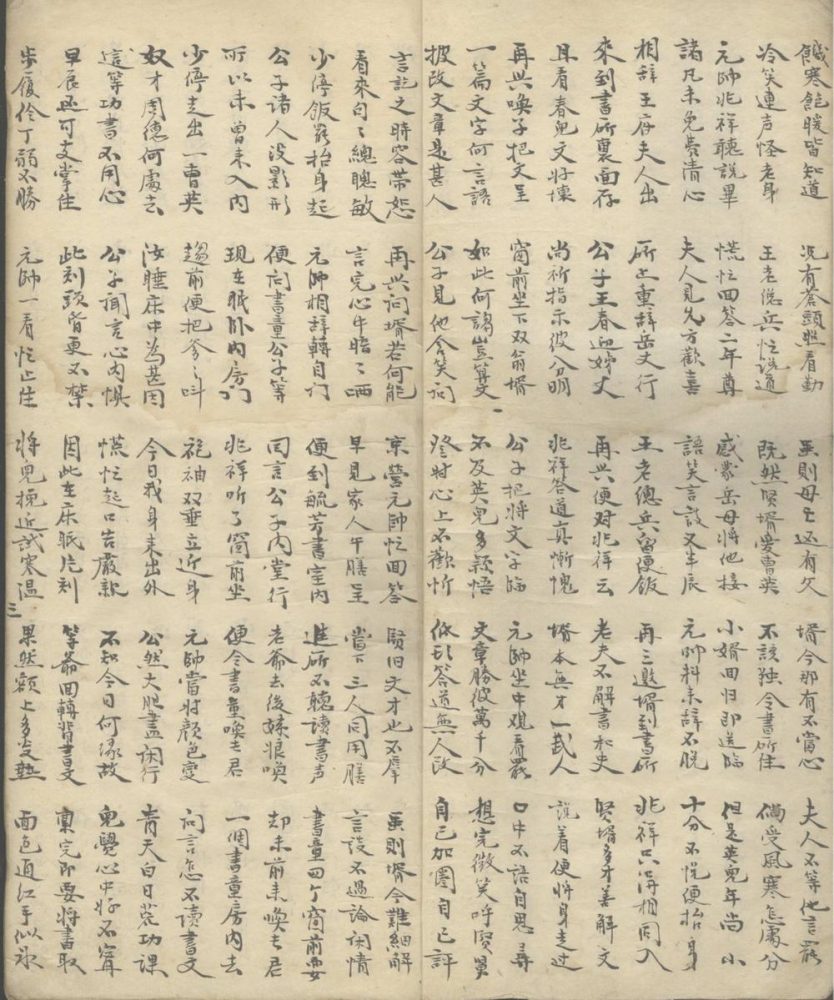 饑寒飽暖皆知道 况有蒼頭照看勤 虽則母亡还有父 婿今那有不當心 夫人不等他言罷
冷笑連声怪老身 王老總兵忙說道 既然贤婿爱曹英 不該独令書所住 倘受風寒怎處分
元帥兆祥聽說畢 慌忙回答二年尊 感蒙岳母将他接 小婿回归即送臨 但是英兒年尚小
諸凡未免費清心 夫人見允方歡喜 語笑言談又半辰 元帥料未辞不脫 十分不悅便抬身
相辞王府夫人出 所上重辞岳丈行 王老總兵留便飯 再三邀婿到書所 兆祥只得相同入
來到書所裏面存 公子王春迎姊丈 再共便对兆祥云 老夫不解書和史 賢婿多才善解文
且看春兒文好壞 尚祈指示彼分明 兆祥答道真慚愧 婿本無才一武人 說着便将身走过
再共喚子把文呈 窗前坐下双翁婿 公子把将文字臨 元帥坐中观看罷 口中不語自思尋
一篇文字何言語 如此何謁豈算文 不及英兒多穎悟 文章勝彼萬千分 想完微笑呼賢舅
披改文章是甚人 公子見他含笑问 登时心上不歡忻 低頭答道無人改 自己加圈自己評
言訖之時容帶怒 再共问婿若何能 京營元帥忙回答 賢旧文才也不庠 虽則婿今難細解
看來句〻總聰敏 言完心中暗〻哂 早見家人午膳呈 當下三人同用膳 言談不過論闲情
少停飯罷抬身起 元帥相辞轉自门 便到毓芳書室內 進所不聽讀書声 書童四个窗前耍
公子諸人沒影形 便问書童公子等 回言公子內堂行 老爺去後妹恨喚 却未前来喚去君
所以未曾來入內 現在眠卧內房门 兆祥听了窗前坐 便令書童喚去君 一個書童房內去
少停走出一曹英 趨前便把爹〻叫 袍袖双垂立近身 元帥當时顏色變 问言怎不讀書文
奴才周德何處去 汝睡床中為甚因 今日我身未出外 公然大胆盡闲行 青天白日荒功課
這等功書不用心 公子闻言心內惧 慌忙起口告嚴親 不知今日何緣故 兒覺心中好不寧
早晨还可支掌住 此刻頭皆更不禁 因此在床眠片刻 等爺回轉背書文 稟完即要将書取
步履伶丁弱不勝 元帥一看忙止住 将兒挽近試寒温 果然額上多 熱 面色通红手似冰
三